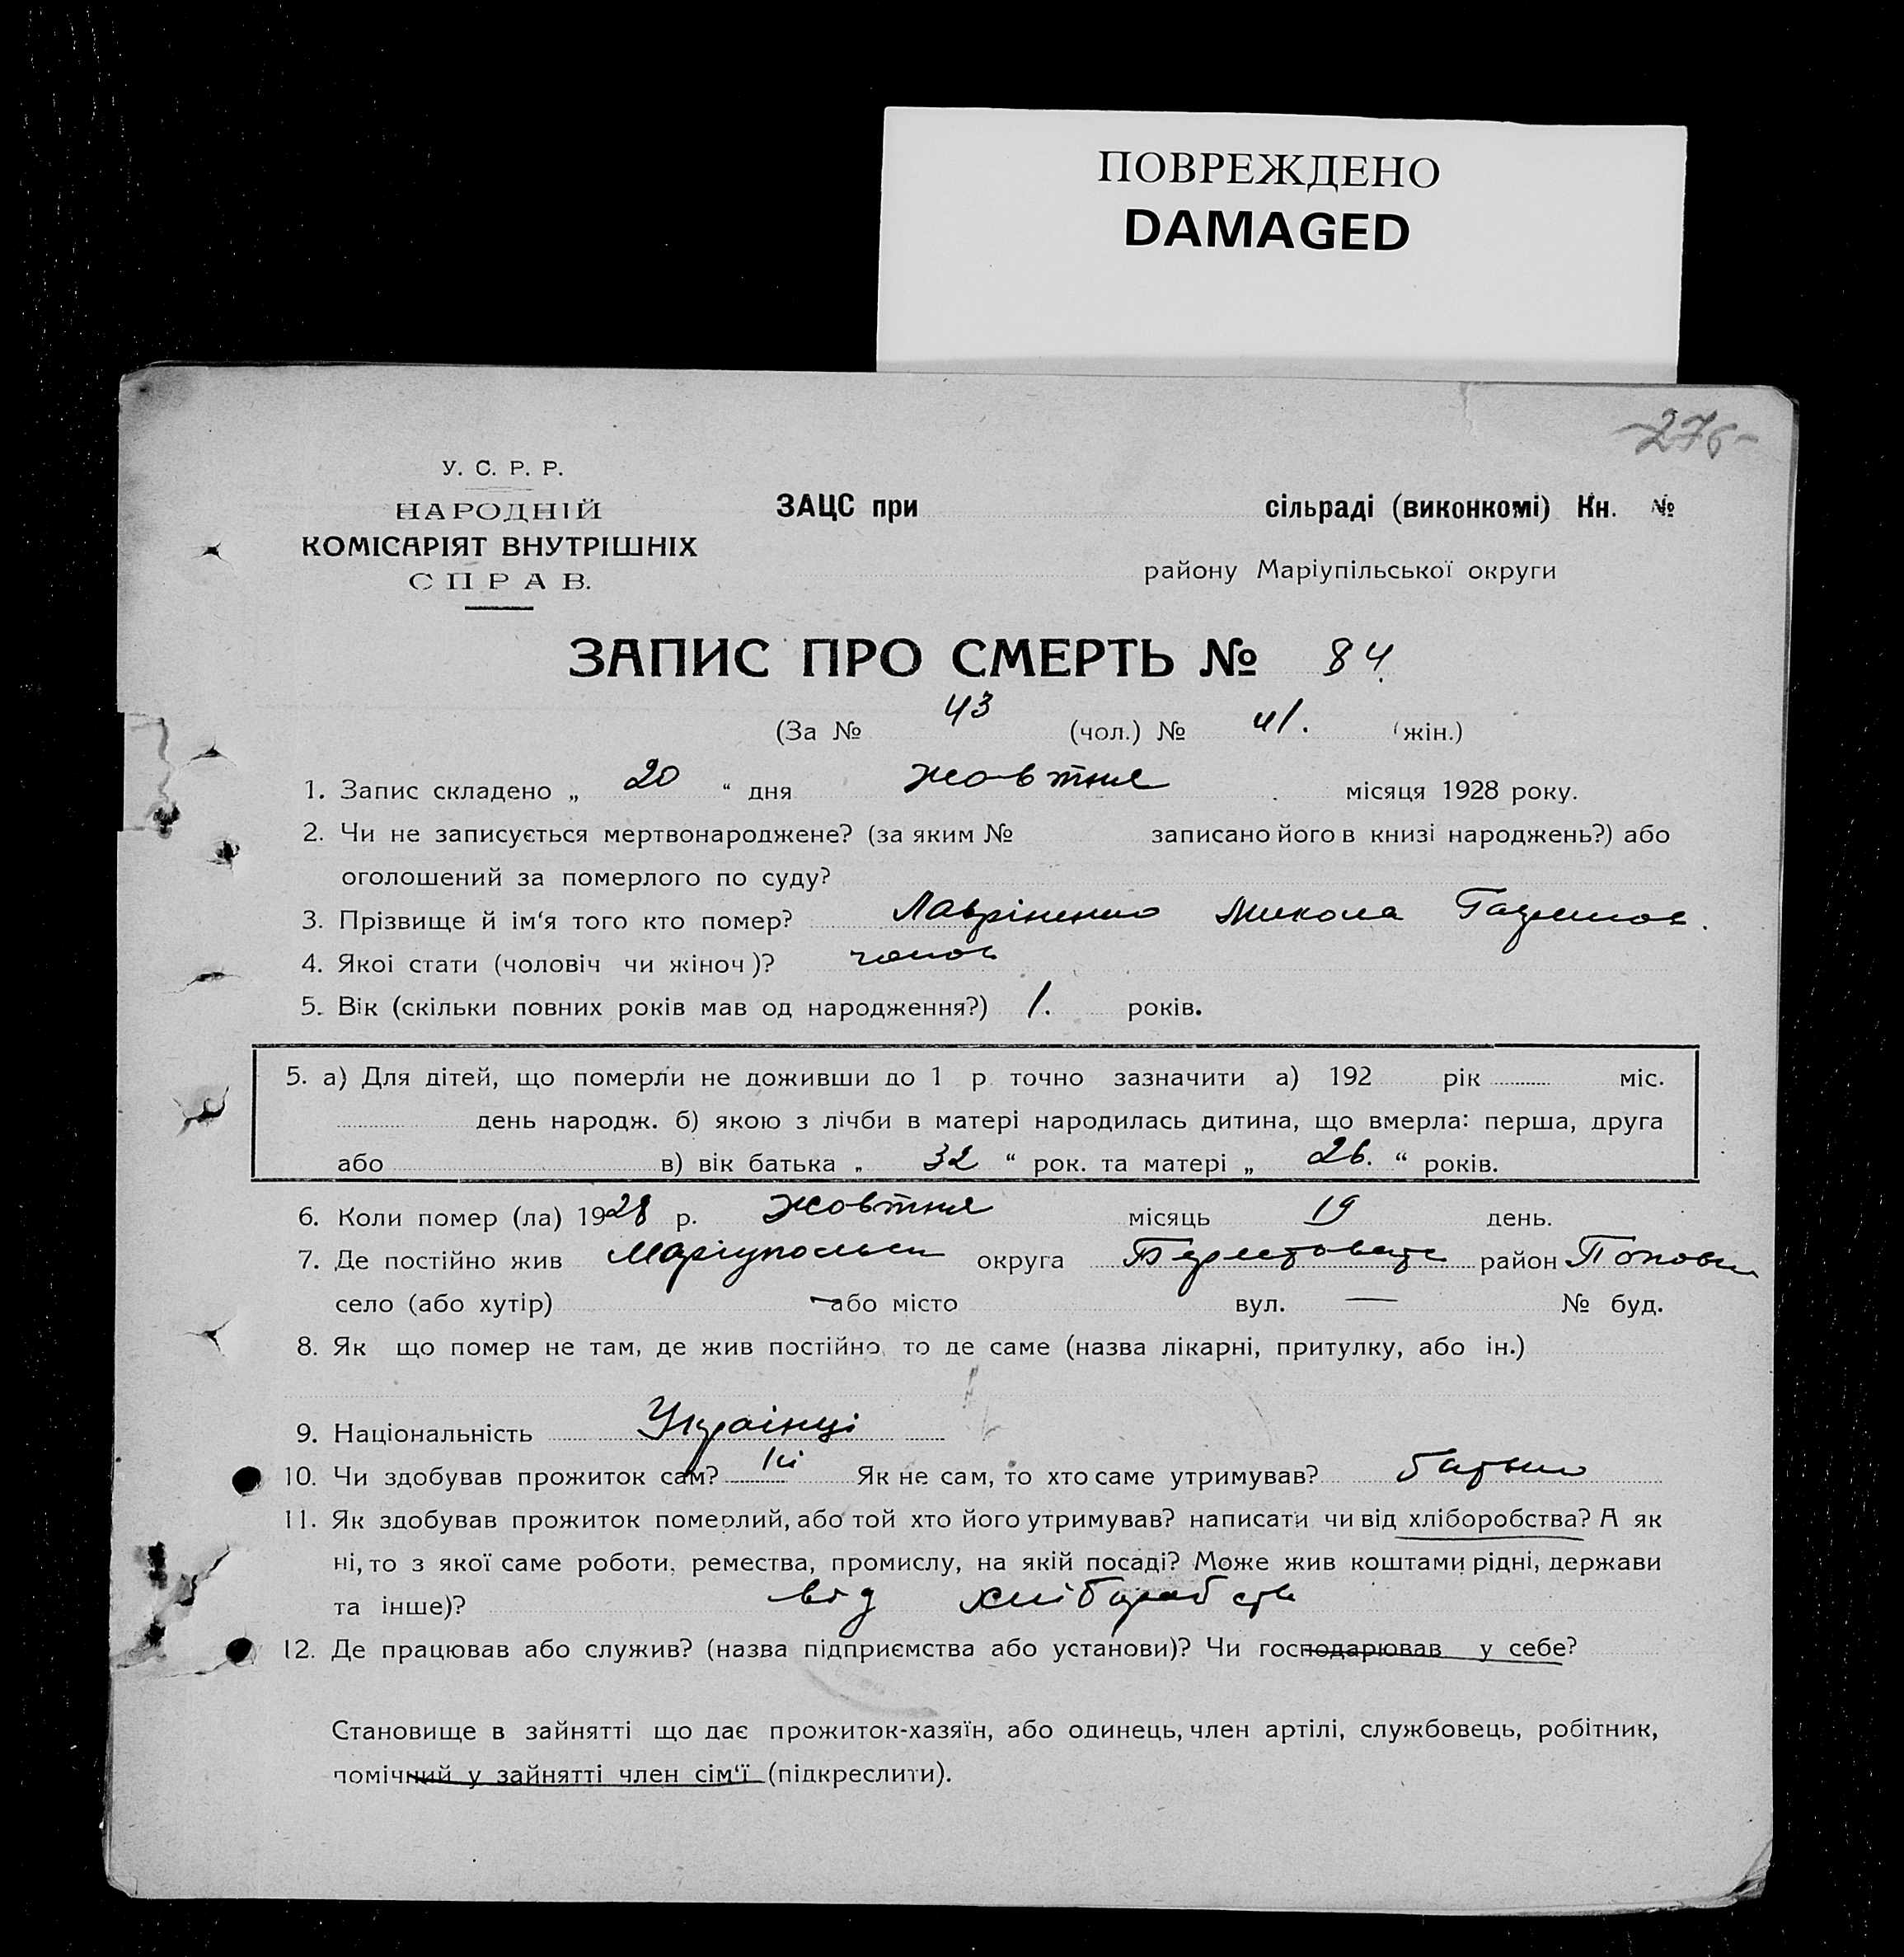 ПОВРЕЖДЕНО
DAMAGED
-276-
У. С. Р. Р.
НАРОДНІЙ
КОМІСАРІЯТ ВНУТРІШНІХ
СПРАВ.
ЗАЦС при сільраді (виконкомі) Кн. №
району Маріупільської округи
ЗАПИС ПРО СМЕРТЬ № 84.
(За № 43 (чол.) № 41. (жін.)
1. Запис складено „ 20 “ дня жовтня місяця 1928 року.
2. Чи не записується мертвонароджене? (за яким № записано його в книзі народжень?) або
оголошений за померлого по суду?
3. Прізвище й ім‘я того кто помер? Лавріненко Микола
4. Якоі стати (чоловіч чи жіноч)? чолов
5. Вік (скільки повних років мав од народження?) 1. років.
5. а) Для дітей, що померли не доживши до 1 р. точно зазначити а) 192 рік міс.
день народж. б) якою з лічби в матері народилась дитина, що вмерла: перша, друга
або в) вік батька „ 32 “ рок. та матері „ 26. “ років.
6. Коли помер (ла) 1928 р. жовтня місяць 19 день.
7. Де постійно жив Маріупольськ округа район
село (або хутір) або місто вул. — № буд.
8. Як що помер не там, де жив постійно, то де саме (назва лікарні, притулку, або ін.)
9. Національність Українці
10. Чи здобував прожиток сам? Ні Як не сам, то хто саме утримував? батько
11. Як здобував прожиток померлий, або той хто його утримував? написати чи від хліборобства? А як
ні, то з якої саме роботи, ремества, промислу, на якій посаді? Може жив коштами рідні, держави
та інше)? від хліборобств
12. Де працював або служив? (назва підприємства або установи)? Чи господарював у себе?
Становище в зайнятті що дає прожиток-хазяїн, або одинець, член артілі, службовець, робітник,
помічний у зайнятті член сім‘ї (підкреслити).